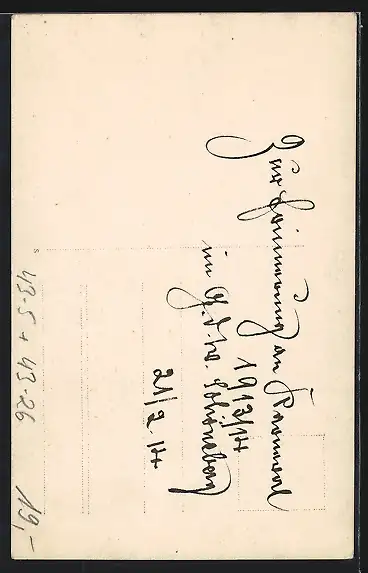 Zur Erinnerung an Karneval
1913/14
im G.d.W. Schöneberg
21/2. 14
43-5 + 43-26
19,-
S